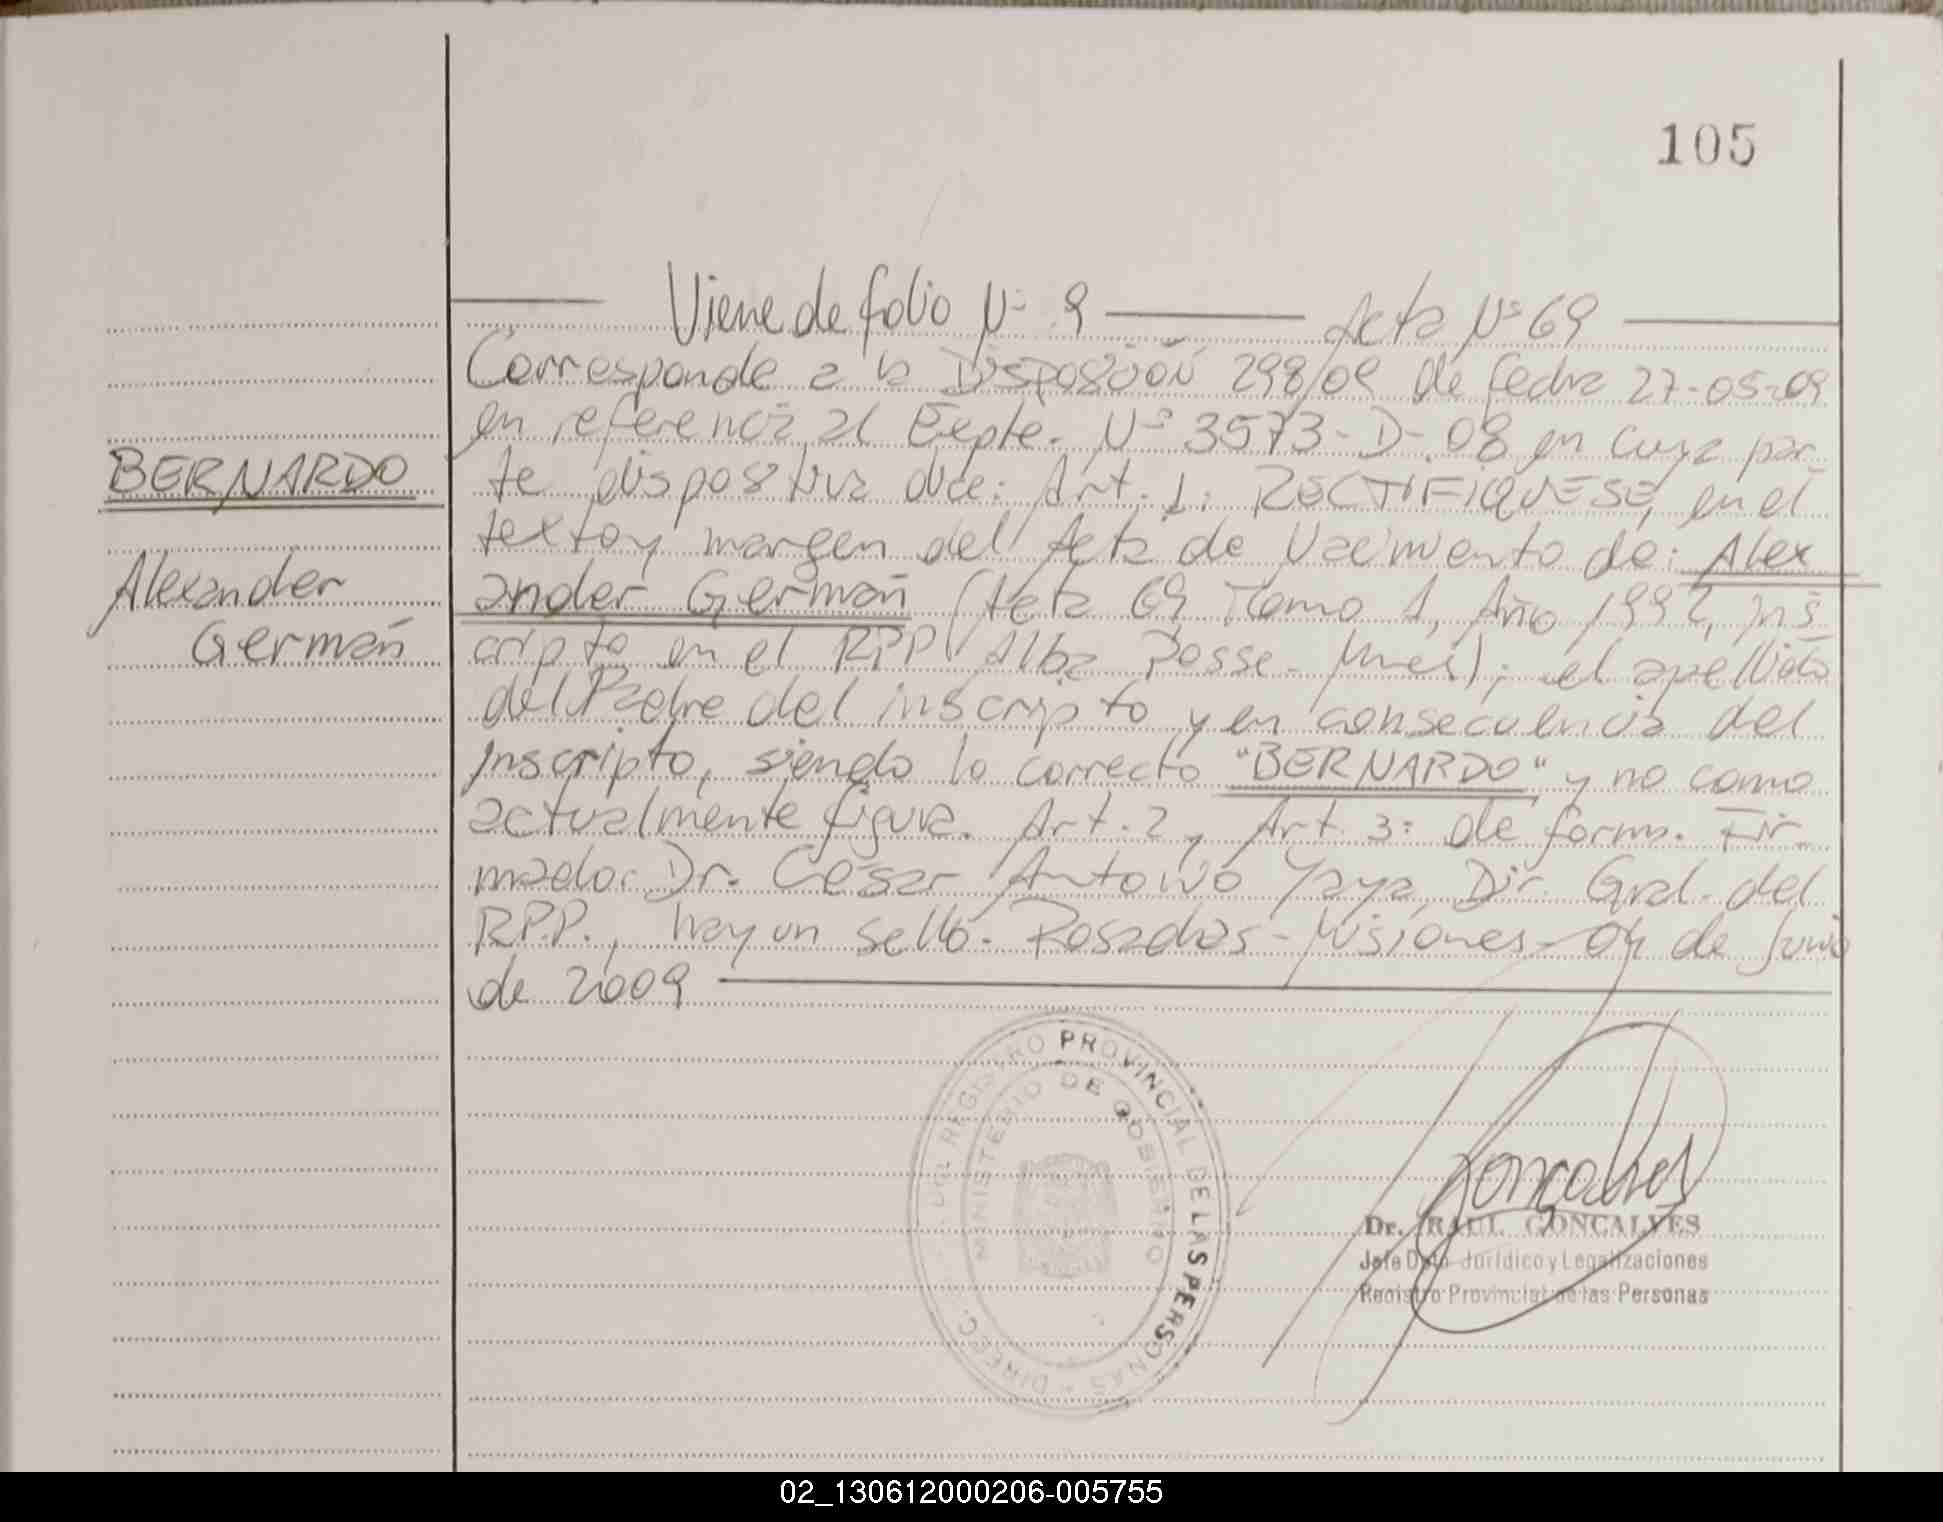 105
Viene de folio Nº 9 Acta Nº 69
Corresponde a la Disposición 298/09 de fecha 27-05-09
en referencia al Expte. Nº 3573-D-08 en cuya par-
BERNARDO
te dispositiva dice: Art. 1: RECTIFIQUESE, en el
texto y margen del Acta de Nacimiento de: Alex
Alexander
Germán
ander Germán (Acta 69, Tomo 1, Año 1992, ins
cripto en el RPP Alba Posse - Mnes); el apellido
del Padre del inscripto y en consecuencia del
Inscripto, siendo lo correcto "BERNARDO" y no como
actualmente figura. Art. 2, Art. 3: de forma. Fir-
mado: Dr. César Antonio Yaya, Dir. Gral. del
R.P.P., hay un sello. Posadas - Misiones - 04 de Junio
de 2009
REGISTRO PROVINCIAL DE LAS PERSONAS
MINISTERIO DE GOBIERNO
Goncalves
Dr. RAUL GONCALVES
Jefe Dpto. Jurídico y Legalizaciones
Registro Provincial de las Personas
02_130612000206-005755